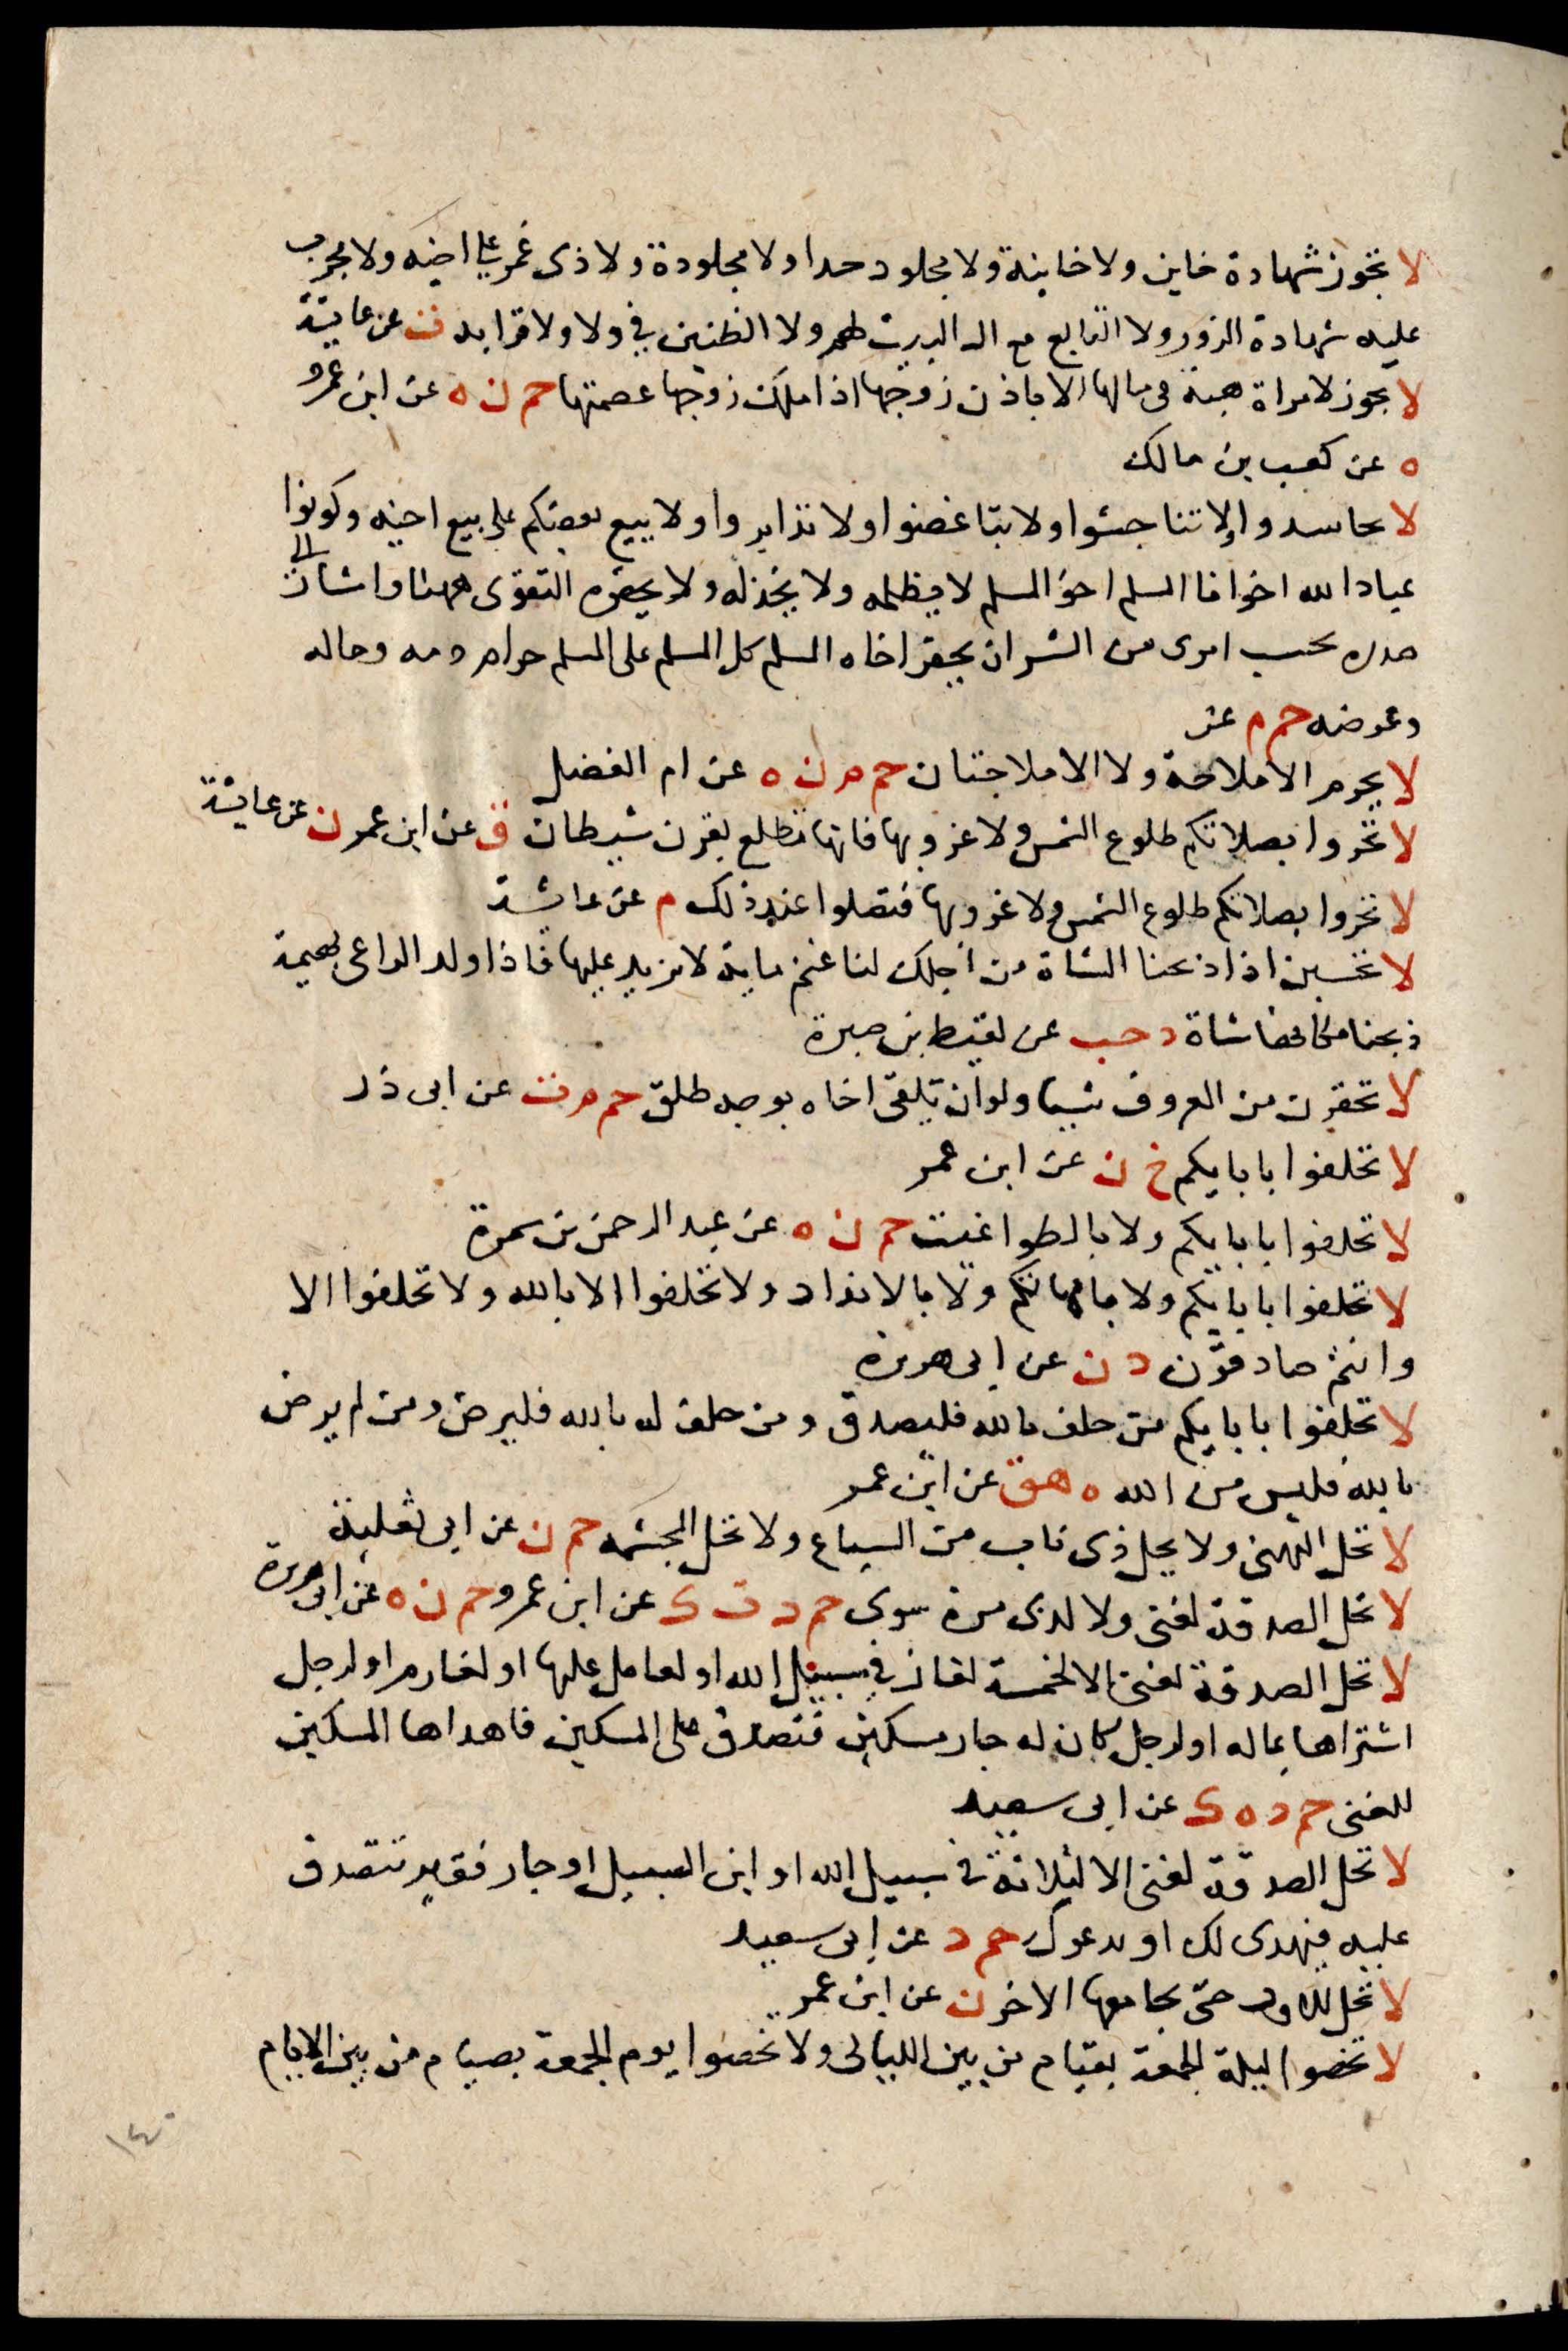 لا تجوز شهادة خاين ولا خاينة ولا مجلود حدا ولا مجلودة ولا ذى غمر على اخيه ولا مجرب
عليه شهادة الزور ولا التابع مع ال البيت لهم ولا الظنين في ولا ولا قرابه ت عن عايشة
لا يجوز لامراة هبة فى مالها الا باذن زوجها اذا ملك زوجها عصمتها حم ن ه عن ابن عمرو
ه عن كعب بن مالك
لا تحاسدوا ولا تناجشوا ولا تباغضوا ولا تدابروا ولا يبيع بعضكم على بيع اخيه وكونوا
عباد الله اخوانا المسلم اخو المسلم لا يظلمه ولا يخذله ولا يحقره التقوى ههنا واشار الى
صدره بحسب امرى من الشر ان يحقر اخاه المسلم كل المسلم على المسلم حرام دمه وماله
وعرضه حم م عن
لا يحرم الاملاجة ولا الاملاجتان حم م ن ه عن ام الفضل
لا تحروا بصلاتكم طلوع الشمس ولا غروبها فانها تطلع بقرن شيطان ق عن ابن عمر ن عن عايشة
لا تحروا بصلاتكم طلوع الشمس ولا غروبها فتصلوا عند ذلك م عن عايشة
لا تحسبن اذا ذبحنا الشاة من اجلك لنا غنم ماية لا نزيد عليها فاذا ولد الراعى بهيمة
ذبحنا مكانها شاة د حب عن لقيط بن صبرة
لا تحقرن من المعروف شيا ولو ان تلقى اخاه بوجه طلق حم م ت عن ابى ذر
لا تحلفوا بابايكم خ ن عن ابن عمر
لا تحلفوا بابايكم ولا بالطواغيت حم ن ه عن عبد الرحمن بن سمرة
لا تحلفوا بابايكم ولا بامهاتكم ولا بالانداد ولا تحلفوا الا بالله ولا تحلفوا الا
وانتم صادقون د ن عن ابى هريرة
لا تحلفوا بابايكم من حلف بالله فليصدق ومن حلف له بالله فليرض ومن لم يرض
بالله فليس من الله ه هق عن ابن عمر
لا تحل النهبى ولا يحل ذى ناب من السباع ولا تحل المجثمه حم ن عن ابى ثعلبة
لا تحل الصدقة لغنى ولا لذى مرة سوى حم د ت ك عن ابن عمرو حم ن ه عن ابى هريرة
لا تحل الصدقة لغنى الا لخمسة لغاز فى سبيل الله او لعامل عليها او لغارم او لرجل
اشتراها بماله او لرجل كان له جار مسكين فتصدق على المسكين فاهداها المسكين
للغنى حم د ه ك عن ابى سعيد
لا تحل الصدقة لغنى الا لثلاثة فى سبيل الله او ابن السبيل او جار فقير تتصدق
عليه فيهدى لك او يدعوك حم د عن ابى سعيد
لا تحل للاول حتى يجامعها الاخر ن عن ابن عمر
لا تخصوا ليلة الجمعة بقيام من بين الليالى ولا تخصوا يوم الجمعة بصيام من بين الايام